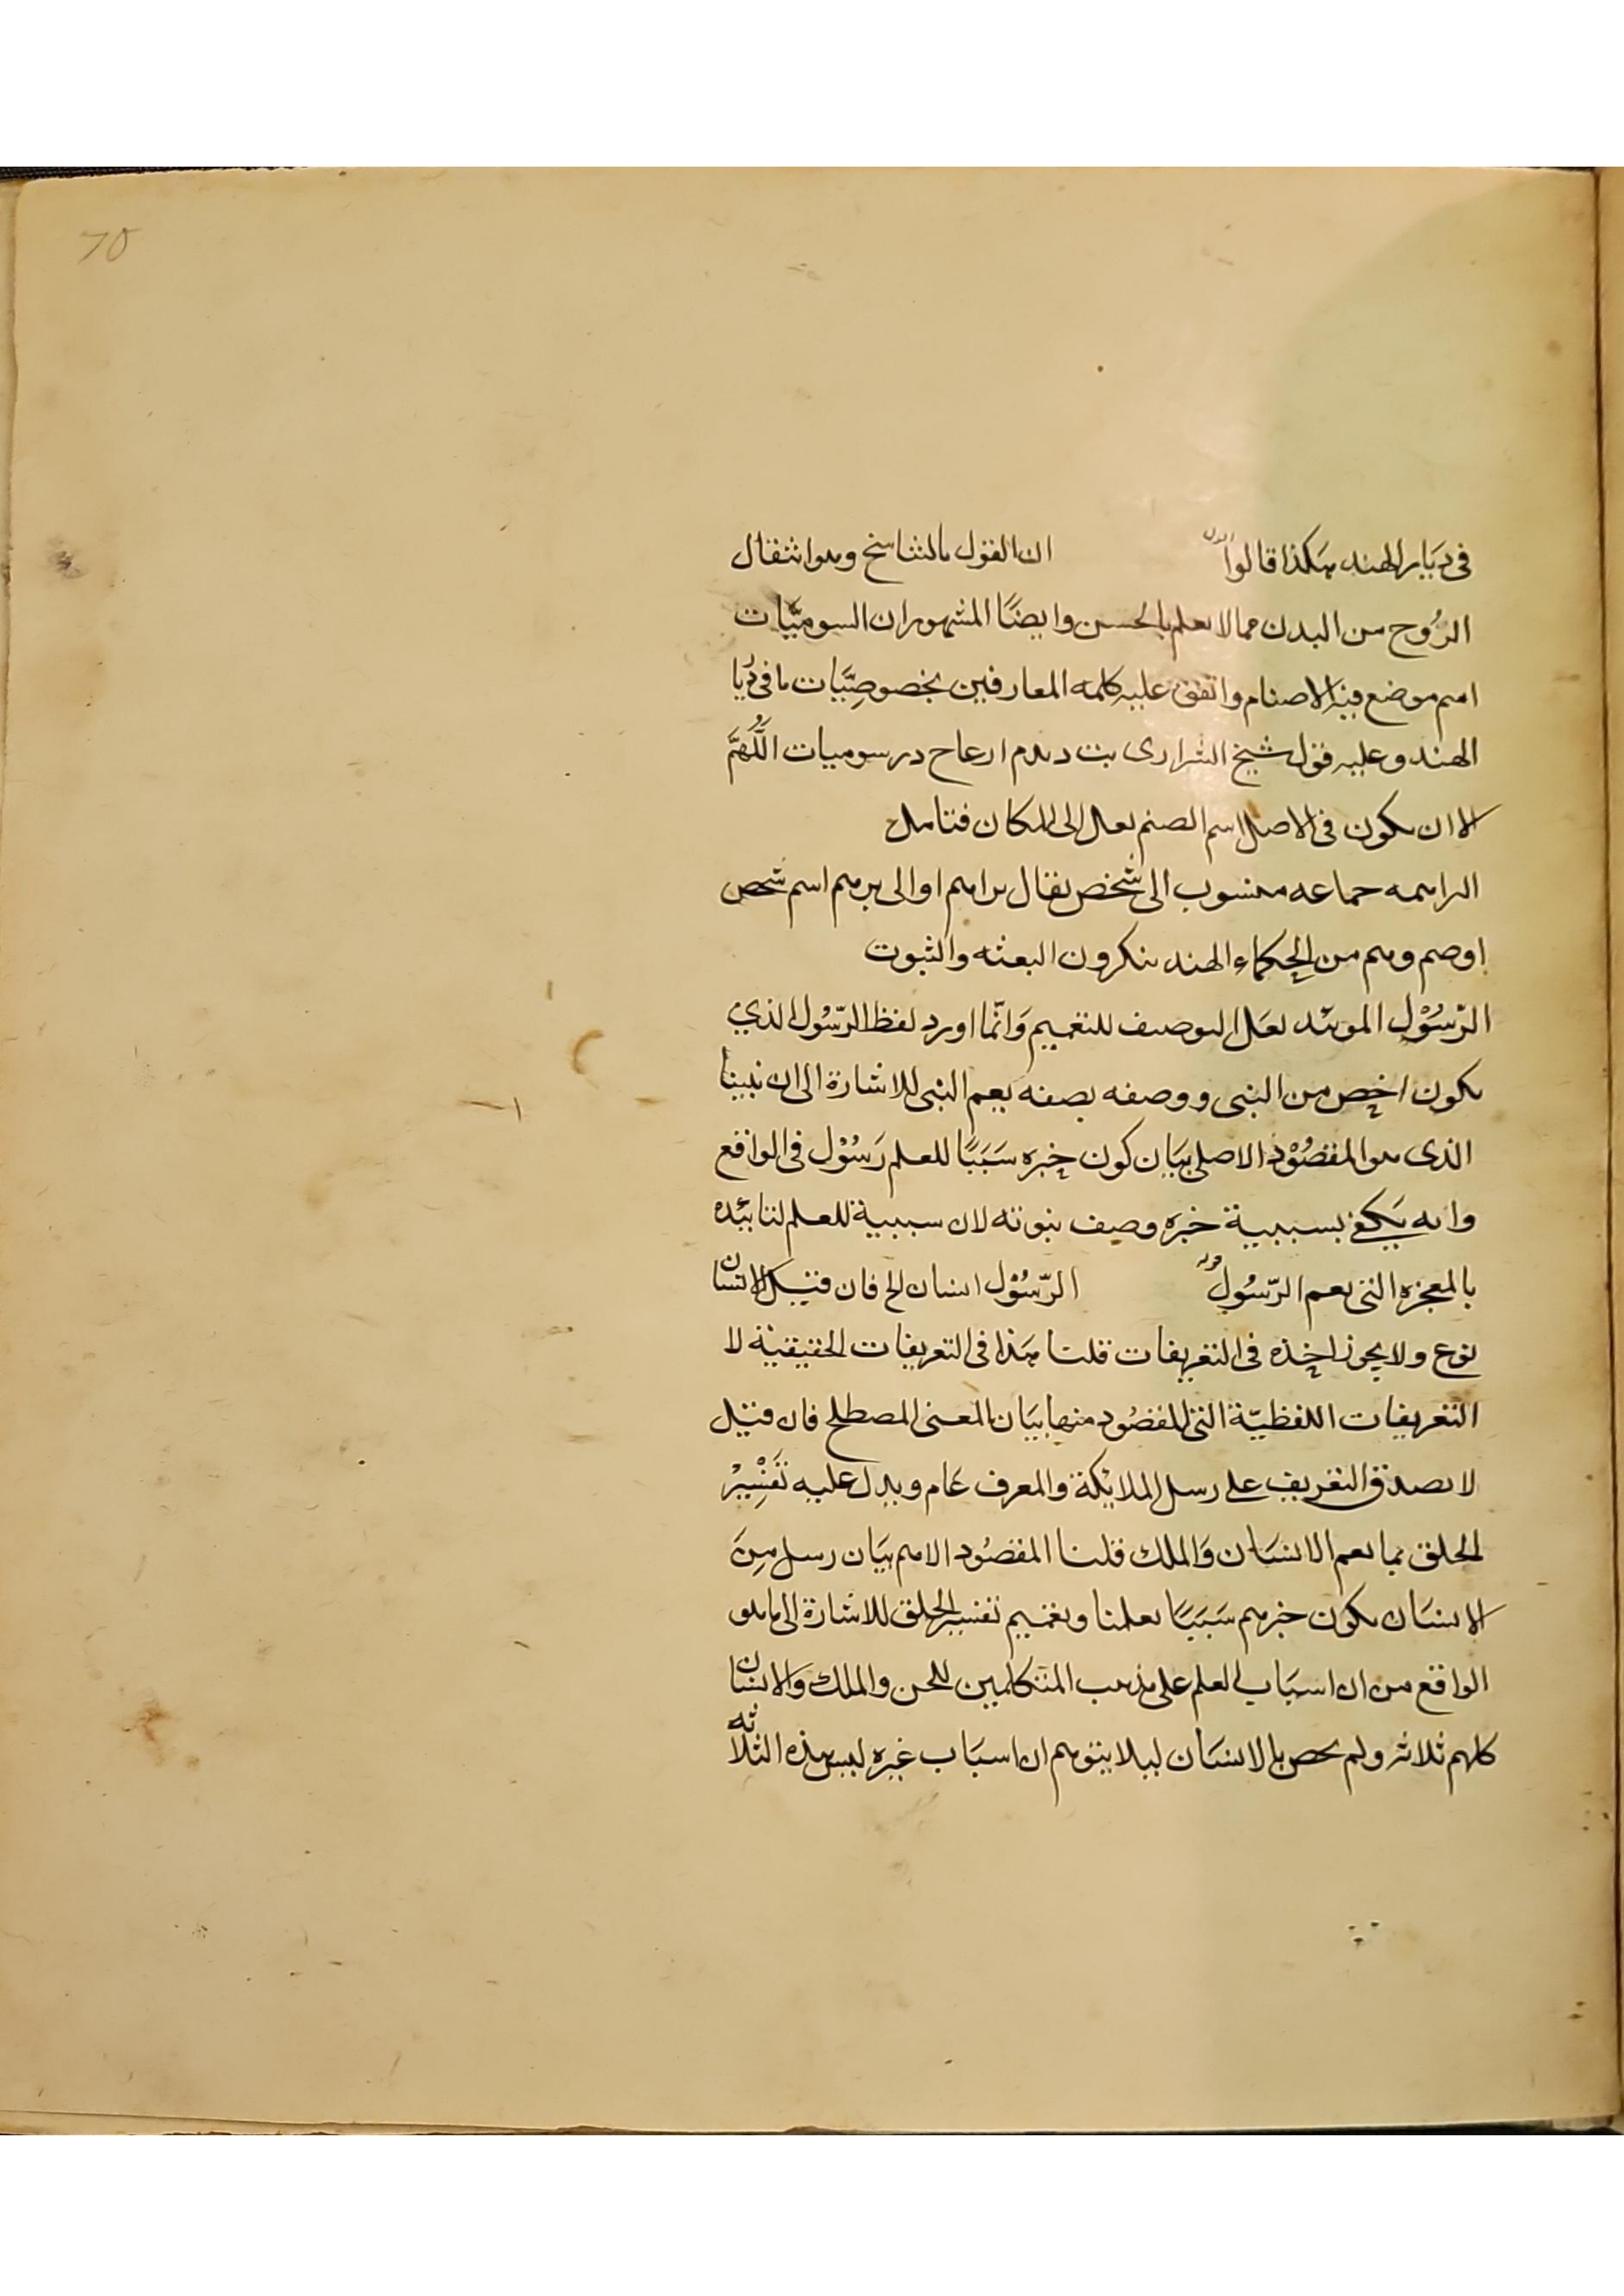 70
في ديار الهند هكذا قالوا ان القول بالتناسخ وهو انتقال
الرُوح من البدن مما لا يعلم بالحسن وايضًا المشهور ان السوميّات
اسم موضع فيه الاصنام واتفق عليه كلمة المعارفين بخصوصِيَّات ما في دُيا
الهند وعليه قول شيخ الشيرازى بت ديدم ازعاج در سوميات اللَّهُمَّ
الا ان يكون في الاصل اسم الصنم نقل الى المكان فتامل
البراهمه جماعه منسوب الى شخص يقال براهم او الى برهم اسم شخص
او صم وهم من الحكماء الهند ينكرون البعثه والثبوت
الرّسُوْل الموئد لعَل التوصيف للتعميم وَانّما اورد لفظ الرّسُول الذي
يكون اخص من النبى ووصفه بصفه يعم النبى للاشارة الى ان نبينا
الذى هو المقصُوْد الاصلى بيَان كون خبره سَبَبًا للعلم رَسُوْل في الواقع
وانه يَكفي بسببية خبره وصف نبوته لان سببية للعلم لتائيده
بالمعجزه التى يعم الرّسُول قوله الرّسُوْل انسان الخ فان قيل الانسان
نوع ولا يجوز اخذه في التعريفات قلنا هَذا في التعريفات الحقيقية لا
التعريفات اللفظيّة التى المقصُود منها بيَان المعنى المصطلح فان قيل
لا يصدق التعريف على رسل الملائكة والمعرف عَام ويدل عليه تَفْسِيْرُ
الخلق بما يعم الانسَان وَالملك قلنا المقصُود الاهم بيَان رسل مِنَ
الانسَان يكون خبرهم سَبَبًا لعلمنا وتعميم تفسير الخلق للاشارة الى ما هو
الواقع من ان اسبَاب العلم على مذهب المتكلمين للجن والملك وَالانسان
كلهم ثلاثه ولم يخص بالانسَان ليلا يتوهم ان اسبَاب غيره ليس هذه الثلاثه